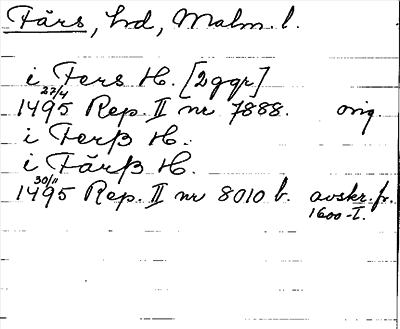 Färs, hd, Malm. l.
i Fers H. [2 ggr]
27/4
1495 Rep. II nr 7888. orig.
i Ferß H.
i Färß H.
30/11
1495 Rep. II nr 8010 b. avskr. fr.
1600-t.